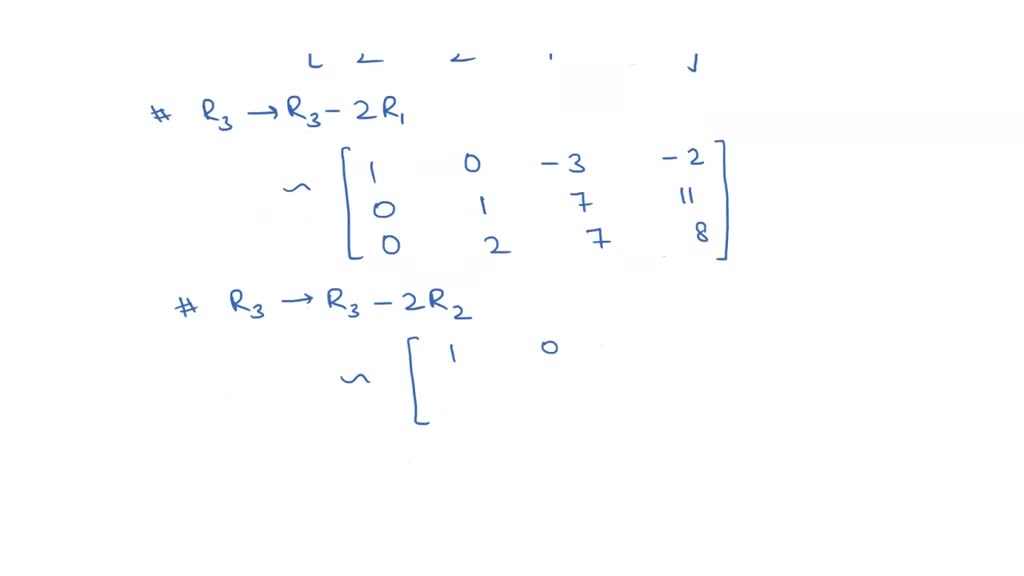 # R₃ → R₃ - 2R₁
~ [ 1 0 -3 -2
0 1 7 11
0 2 7 8 ]
# R₃ → R₃ - 2R₂
~ [ 1 0